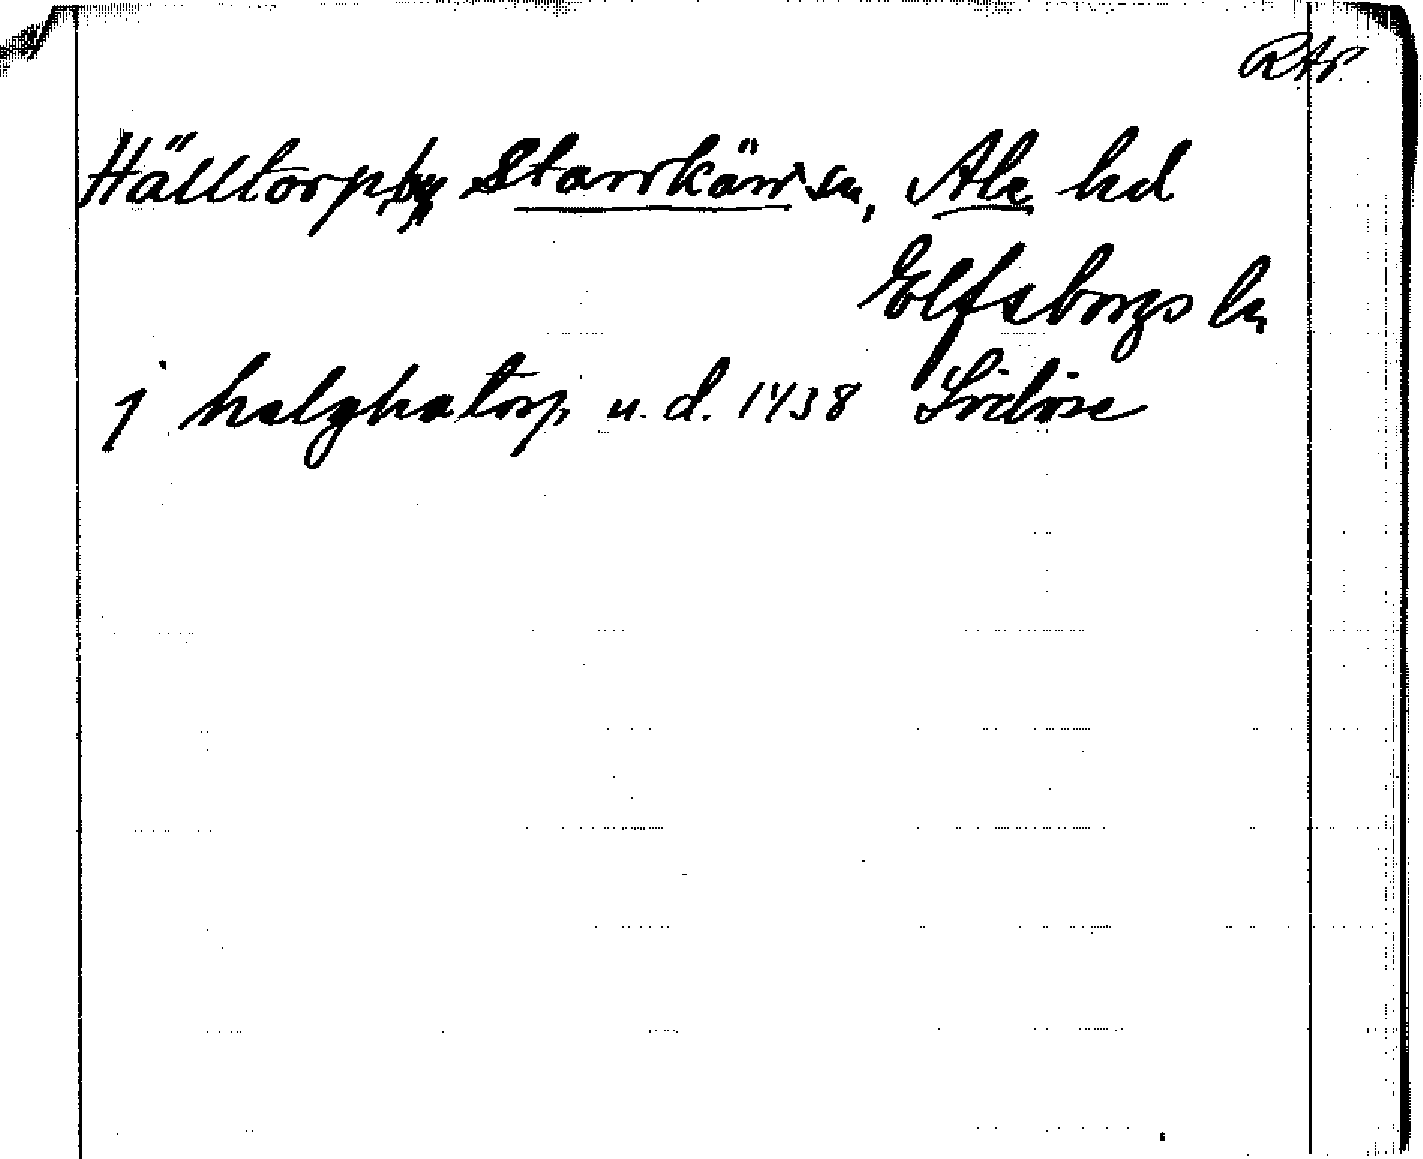 RAp.
Hälltorp, by Starrkärr sn, Ale hd
Elfsborgs ln
j halghatorp u. d. 1438 Lödöse